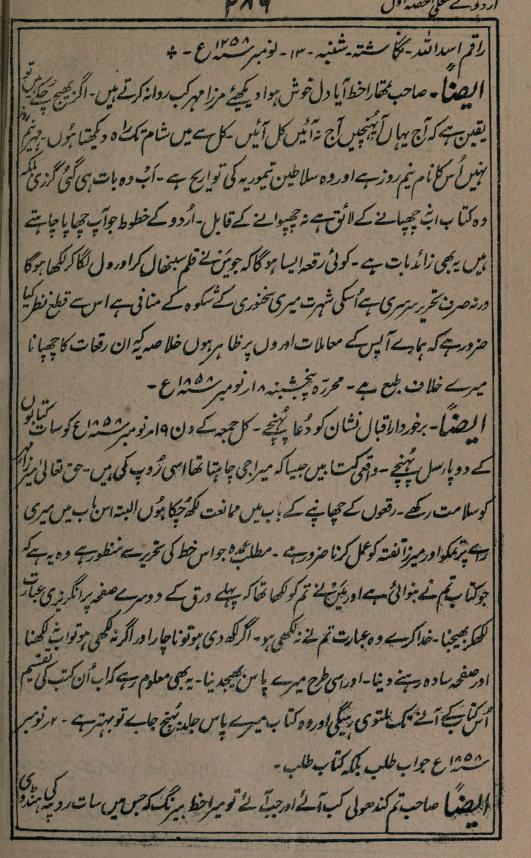 اردوے معلی حصہ اول ۲۸۹
راقم اسد اللہ ۔ نگاشتہ شنبہ ۔ ۱۳ ۔ نومبر ۱۸۵۸ ع ۔
ایضاً ۔ صاحب تمھارا خط آیا دل خوش ہوا دیکھئے مرزا مہر کب روانہ کرتے ہیں ۔ اگر بھیج چکے ہیں تو
یقین ہے کہ آج یہاں آ پہنچیں آج نہ آئیں کل آئیں ۔ کل سے میں شام تک راہ دیکھتا ہوں ۔ مہر نیم روز
نہیں اُسکا نام نیم روز ہے اور وہ سلاطین تیموریہ کی تواریخ ہے ۔ اب وہ بات ہی گئی گزری بلکہ
وہ کتاب اب چھپانے کے لائق ہے نہ چھپوانے کے قابل ۔ اُردو کے خطوط جو آپ چھاپا چاہتے
ہیں یہ بھی زائد بات ہے ۔ کوئی رقعہ ایسا ہو گا کہ جو میں نے قلم سنبھال کر اور دل لگا کر لکھا ہو گا
ورنہ صرف تحریر سرسری ہے اُسکی شہرت میری سخنوری کے شکوہ کے منافی ہے اس سے قطع نظر کیا
ضرور ہے کہ ہمارے آپس کے معاملات اوروں پر ظاہر ہوں خلاصہ یہ کہ ان رقعات کا چھپانا
میرے خلاف طبع ہے ۔ محررہ پنجشنبہ ۱۸ ۔ نومبر ۱۸۵۸ ع ۔
ایضاً ۔ برخوردار اقبال نشان کو دُعا پہنچے ۔ کل جمعہ کے دن ۱۹ ۔ نومبر ۱۸۵۸ ع کو سات کتابوں
کے دو پارسل پہنچے ۔ واقعی کتابیں جیسا کہ میرا جی چاہتا تھا اسی روپ کی ہیں ۔ حق تعالیٰ میرزا مہر
کو سلامت رکھے ۔ رقعوں کے چھاپنے کے باب میں ممانعت لکھ چکا ہوں البتہ اس باب میں میری
راے پر تمکو اور میرزا تفتہ کو عمل کرنا ضرور ہے ۔ مطلب عمدہ جو اس خط کی تحریر سے منظور ہے وہ یہ ہے کہ
جو کتاب تم نے بنوائی ہے اور میں نے تم کو لکھا تھا کہ پہلے ورق کے دوسرے صفحہ پر انگریزی عبارت
لکھکر بھیجنا ۔ خدا کرے وہ عبارت تم نے نہ لکھی ہو ۔ اگر لکھ دی ہو تو ناچار اور اگر نہ لکھی ہو تو اب نہ لکھنا
اور صفحہ سادہ رہنے دینا ۔ اور اسی طرح میرے پاس بھیجدینا ۔ یہ بھی معلوم رہے کہ اب اُن کتب کی تقسیم
اُس کتاب کے آنے تک ملتوی رہیگی اور وہ کتاب میرے پاس جلد پہنچ جاے تو بہتر ہے ۔ ۲۰ ۔ نومبر
۱۸۵۸ ع جواب طلب بلکہ کتاب طلب ۔
ایضاً صاحب تم کندھولی کب آئے اور جب آئے تو میرا خط بیرنگ کہ جس میں سات روپیہ کی ہنڈوی